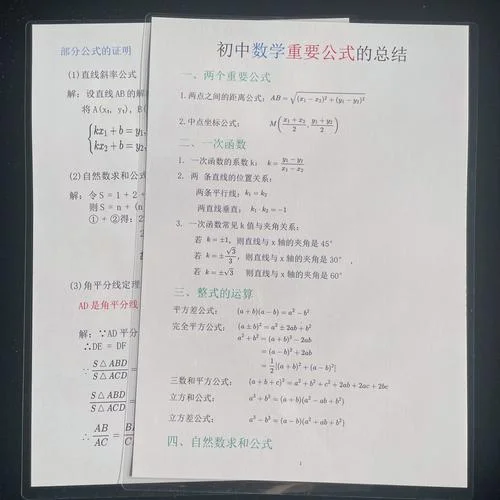 部分公式的证明
(1) 直线斜率公式
解：设直线AB的解
将 A(x₁, y₁), B(
{kx₁ + b = y₁,
kx₂ + b = y₂,
(2) 自然数求和公式
解：令 S = 1 + 2 +
则 S = n + (n
① + ②得：2
(3) 角平分线定理
AD是角平分线
解：∵AD平分
∴DE = DF
∵ S△ABD/S△ACD =
S△ABD/S△ACD =
∴ AB/AC = B/
初中数学重要公式的总结
一、两个重要公式
1.两点之间的距离公式：AB = √((x₁ − x₂)² + (y₁ − y₂)²)
2.中点坐标公式： M((x₁ + x₂)/2, (y₁ + y₂)/2)
二、一次函数
1. 一次函数的系数 k： k = (y₁ − y₂)/(x₁ − x₂)
2. 两 条直线的位置关系：
两条平行线：k₁ = k₂
两直线垂直：k₁ · k₂ = −1
3. 一次函数常见 k 值与夹角关系：
若 k = ±1, 则直线与 x 轴的夹角是 45°
若 k = ±√3/3, 则直线与 x 轴的夹角是 30° ,
若 k = ±√3 则直线与 x 轴的夹角是 60°
三、整式的运算
平方差公式： (a + b)(a − b) = a² − b²
完全平方公式： (a ± b)² = a² ± 2ab + b²
a² + b² = (a + b)² − 2ab
= (a − b)² + 2ab
= 1/2[(a + b)² + (a − b)²]
三数和平方公式：(a + b + c)² = a² + b² + c² + 2ab + 2ac + 2bc
立方和公式： a³ + b³ = (a + b)(a² − ab + b²)
立方差公式： a³ − b³ = (a − b)(a² + ab + b²)
四、自然数求和公式
1